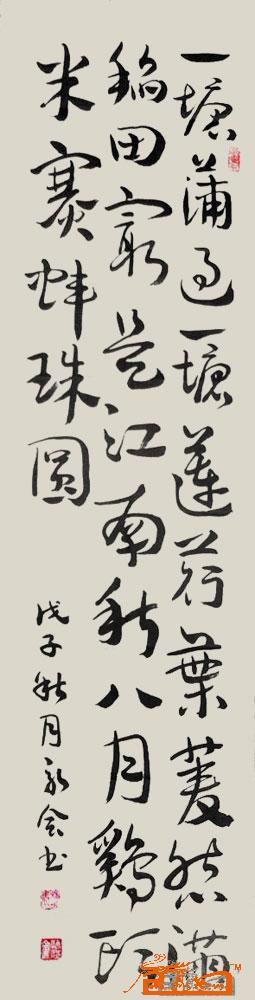 一塘蒲过一塘蓮荇葉菱丝满
稻田最是江南秋八月鷄头
米赛蚌珠圆
戊子秋月永会书